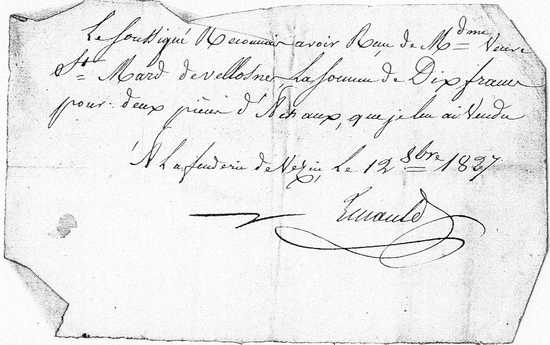 Le Soussigné Reconnais avoir Reçu de Mdme Veuve
St Mard de vellosnes La Somme de Dix francs
pour deux pieces d', que je lui ai Vendu
A La fenderie de Vezin, Le 12 8bre 1827